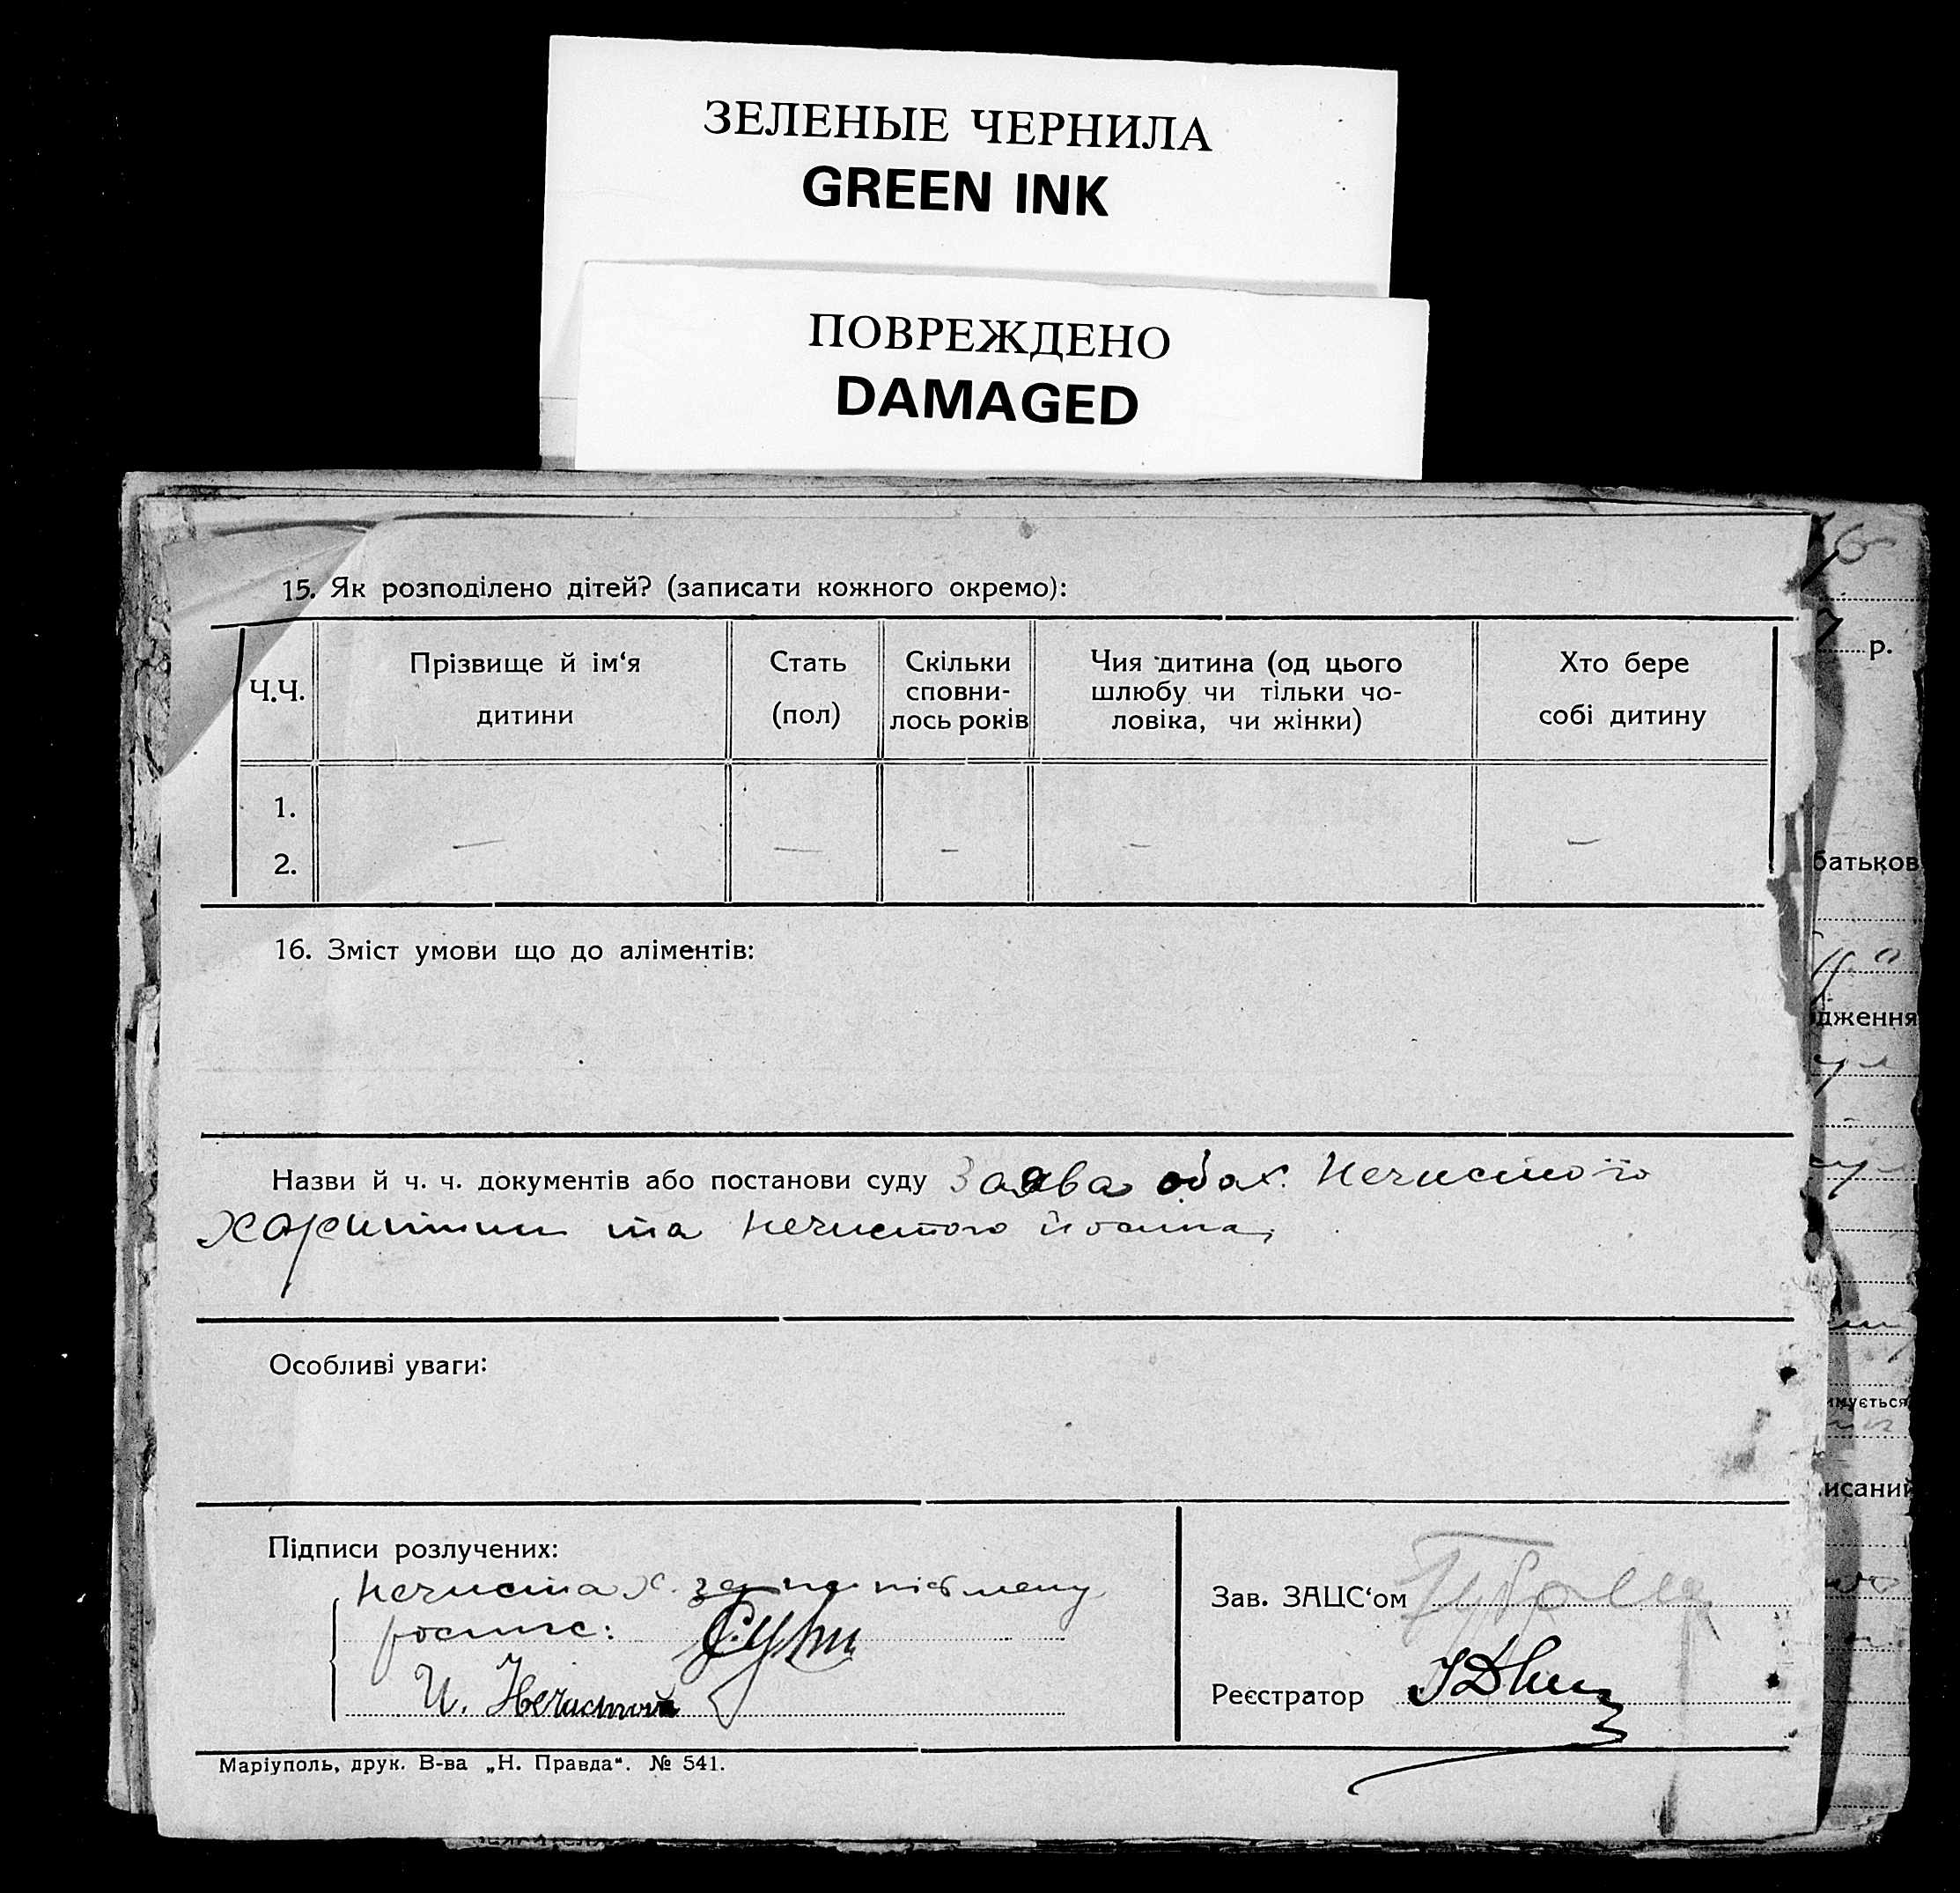 ЗЕЛЕНЫЕ ЧЕРНИЛА
GREEN INK
ПОВРЕЖДЕНО
DAMAGED
15. Як розподілено дітей? (записати кожного окремо):
Ч.Ч.
Прізвище й ім‘я
дитини
Стать
(пол)
Скільки
сповни-
лось років
Чия дитина (од цього
шлюбу чи тільки чо-
ловіка, чи жінки)
Хто бере
собі дитину
1.
2. — — — — —
16. Зміст умови що до аліментів:
Назви й ч. ч. документів або постанови суду Заява обох. Нечистої
Харитини та Нечистого Йосипа,
Особливі уваги:
Підписи розлучених:
Нечиста Х. за
роспис:
И. Нечистой
Зав. ЗАЦС‘ом
Реєстратор
Маріуполь, друк. В-ва „Н. Правда“. № 541.
р.
батьков
дження
имується
исаний